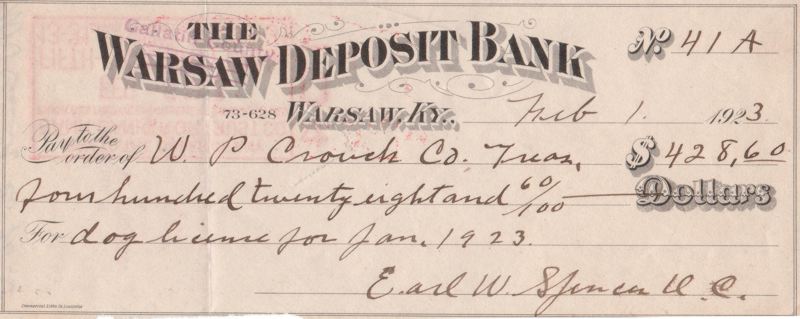 Gallatin County
THE
WARSAW DEPOSIT BANK
No. 41A
73-628 WARSAW, KY., Feb 1. 1923.
Pay to the order of W. P. Crouch Co. Treas. $428,60
four hundred twenty eight and 60/100 Dollars
For dog license for Jan. 1923.
Earl W. Spencer C. C.